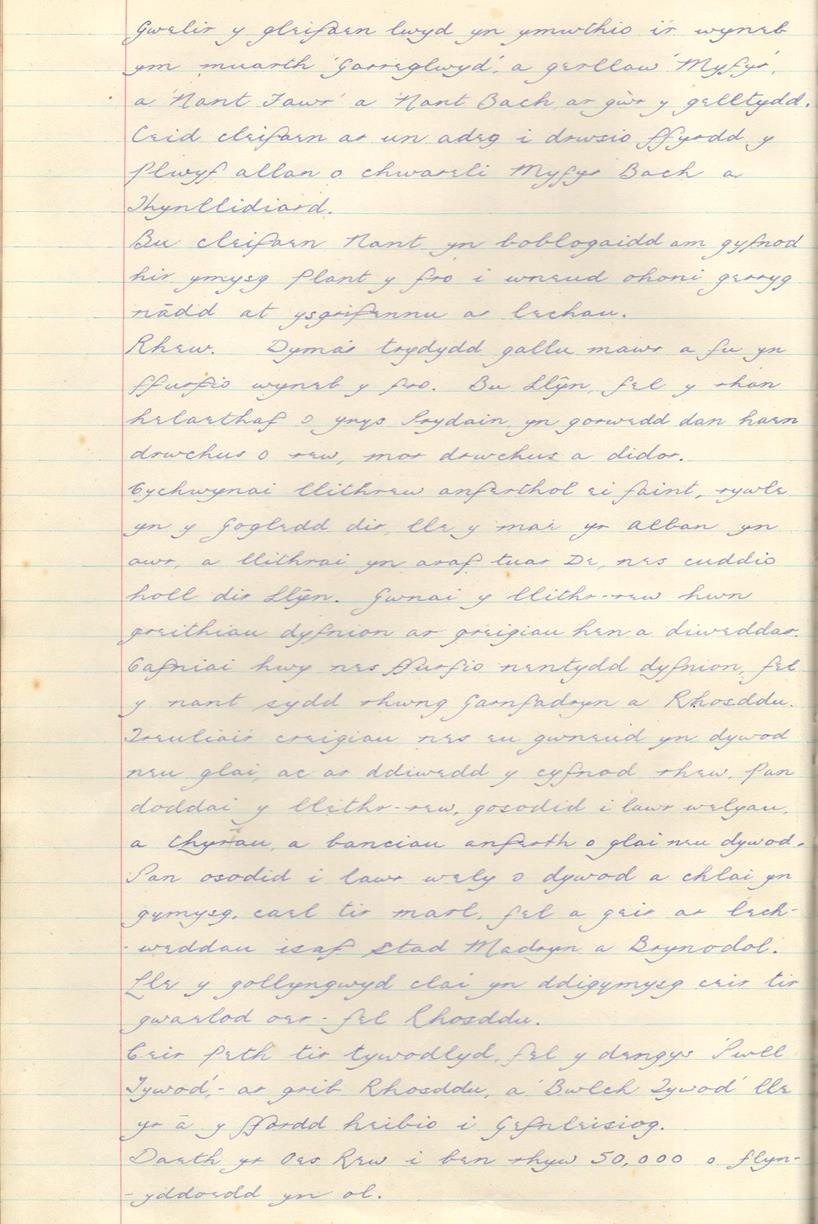 Gwelir y gleifaen lwyd yn ymwthio i'r wyneb
ym muarth 'Garreglwyd', a gerllaw 'Myfyr',
a 'Nant Fawr' a 'Nant Bach' ar gŵr y gelltydd.
Ceid cleifaen ar un adeg i drwsio ffyrdd y
Plwyf allan o chwareli Myfyr Bach a
Thynllidiard.
Bu cleifaen Nant yn boblogaidd am gyfnod
hir ymysg Plant y fro i wneud ohoni gerryg
nādd at ysgrifennu ar lechau.
Rhew. Dyma'r trydydd gallu mawr a fu yn
ffurfio wyneb y fro. Bu Llŷn, fel y rhan
helaethaf o ynys Prydain, yn gorwedd dan haen
drwchus o rew, mor drwchus a didor.
Cychwynai llithrew anferthol ei faint, rywle
yn y Gogledd dir, lle y mae yr Alban yn
awr, a llithrai yn araf tua'r De, nes cuddio
holl dir Llŷn. Gwnai y llithr-rew hwn
greithiau dyfnion ar greigiau hen a diweddar.
Cafniai hwy nes ffurfio nentydd dyfnion, fel
y nant sydd rhwng Garnfadryn a Rhosddu.
Treuliai'r creigiau nes eu gwneud yn dywod
neu glai, ac ar ddiwedd y cyfnod rhew, Pan
doddai y llithr-rew, gosodid i lawr welyau,
a thyrau, a banciau anferth o glai neu dywod.
Pan osodid i lawr wely o dywod a chlai yn
gymysg, cael tir marl, fel a geir ar lech-
-weddau isaf Stad Madryn a Brynodol.
Lle y gollyngwyd clai yn ddigymysg ceir tir
gwaelod oer - fel Rhosddu.
Ceir Peth tir tywodlyd, fel y dengys 'Pwll
Tywod', - ar grib Rhosddu, a 'Bwlch Tywod' lle
yr ā y ffordd heibio i Gefnleisiog.
Daeth yr Oes Rew i ben rhyw 50,000 o flyn-
-yddoedd yn ol.